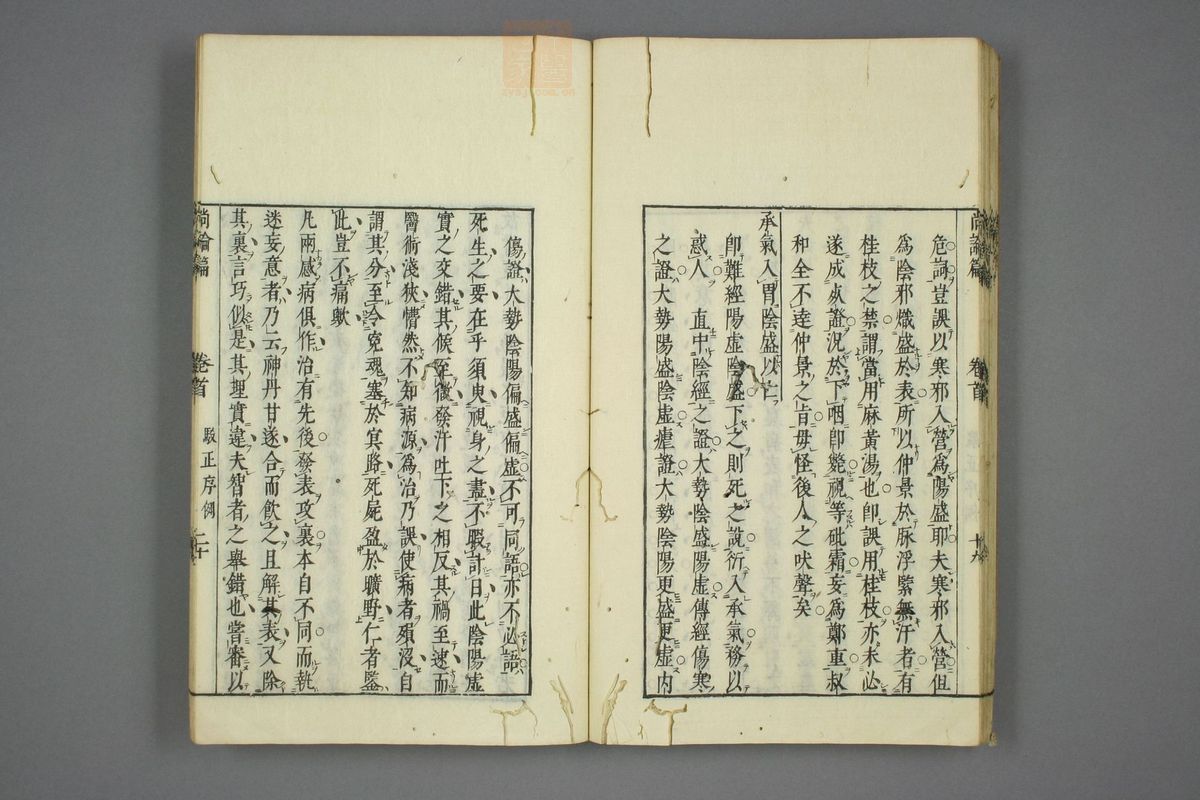 尚論篇 卷首 十九
危詞豈誤以寒邪入營為陽盛耶夫寒邪入營但
為陰邪熾盛於表所以仲景於脉浮緊無汗者有
桂枝之禁謂當用麻黃湯也卽誤用桂枝亦未必
遂成死證況於下咽卽斃視等砒霜妄為鄭重叔
和全不達仲景之旨毋怪後人之吠聲矣
承氣入胃陰盛以亡
卽難經陽虛陰盛下之則死之說衍入承氣移以
惑人 直中陰經之證大勢陰盛陽虛傳經傷寒
之證大勢陽盛陰虛瘧證大勢陰陽更盛更虛內
傷證大勢陰陽偏盛偏虛不可同語亦不必語
死生之要在乎須臾視身之盡不暇計日此陰陽虛
實之交錯其候至微發汗吐下之相反其禍至速而
醫術淺狹懵然不知病源為治乃誤使病者殞沒自
謂其分至令冤魂塞於冥路死屍盈於曠野仁者鑒
此豈不痛歟
凡兩感病俱作治有先後發表攻裏本自不同而執
迷妄意者乃云神丹甘遂合而飲之且解其表又除
其裏言巧似是其理實違夫智者之舉錯也嘗審以
尚論篇 卷首 駁正序例 二十